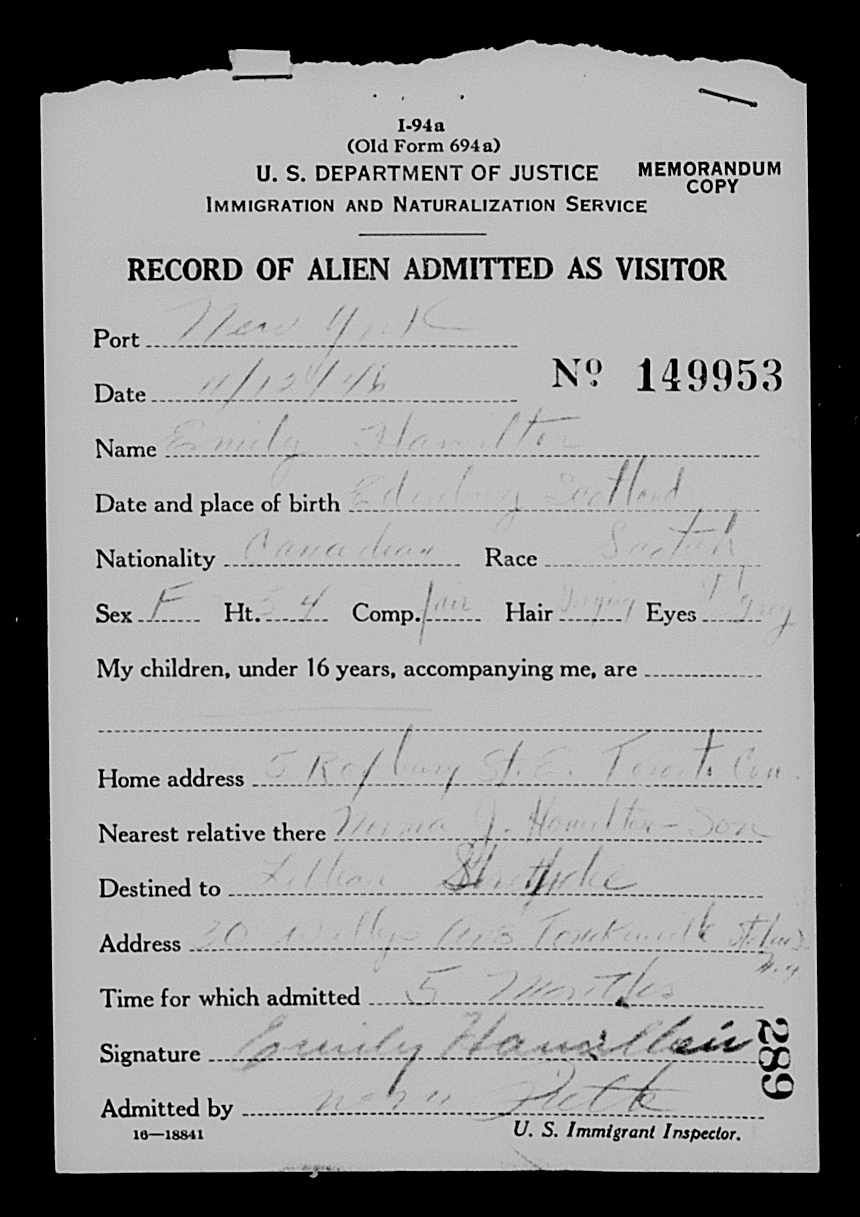 I-94a
(Old Form 694a)
U. S. DEPARTMENT OF JUSTICE
MEMORANDUM COPY
IMMIGRATION AND NATURALIZATION SERVICE
RECORD OF ALIEN ADMITTED AS VISITOR
Port New York
Nº 149953
Date 11/12/46
Name Emily Hamilton
Date and place of birth Scotland
Nationality Canadian Race Scotch
Sex F Ht. 5 4 Comp. fair Hair Eyes grey
My children, under 16 years, accompanying me, are
Home address 5 St. E. Toronto Can.
Nearest relative there J. Hamilton - Son
Destined to Lillian
Address 20 Ave
N.Y
Time for which admitted 5 Months
Signature Emily Hamilton
289
Admitted by
16—18841 U. S. Immigrant Inspector.